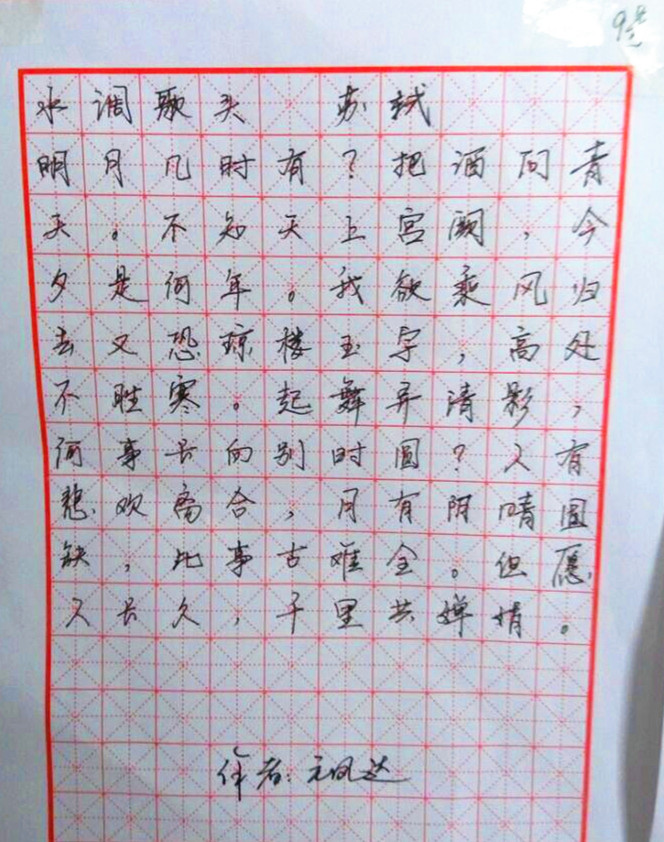 水调歌头 苏轼
明月几时有？把酒问青
天。不知天上宫阙，今
夕是何年。我欲乘风归
去又恐琼楼玉宇，高处
不胜寒。起舞弄清影，
何事长向别时圆？人有
悲欢离合，月有阴晴圆
缺，此事古难全。但愿
人长久，千里共婵娟。
作者：